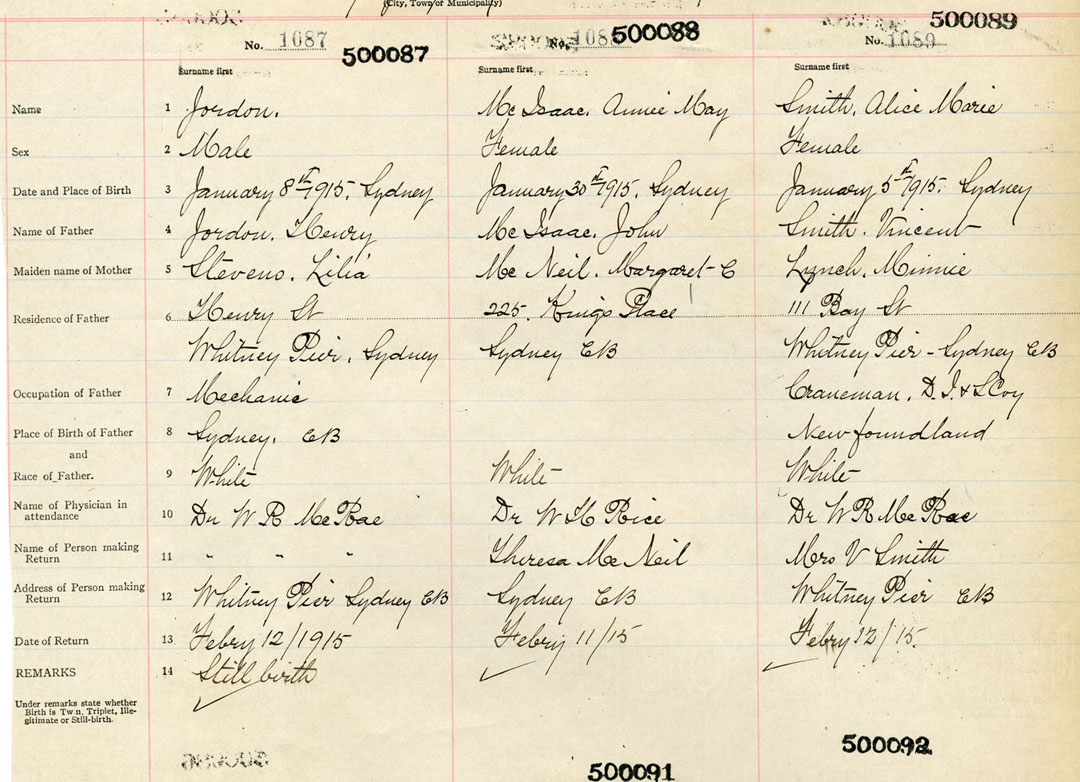 (City, Town or Municipality)
No. 1087 500087
500088
No. 1089 500089
Surname first Surname first Surname first
Name 1 Jordon. Mc Isaac. Annie May Smith. Alice Marie
Sex 2 Male Female Female
Date and Place of Birth 3 January 8th 1915. Sydney January 30th 1915. Sydney January 5th 1915. Sydney
Name of Father 4 Jordon. Henry Mc Isaac. John Smith. Vincent
Maiden name of Mother 5 Stevens. Lilia Mc Neil. Margaret C Lynch. Minnie
Residence of Father 6 Henry St 225. Kings Place 111 Bay St
Whitney Pier. Sydney Sydney CB Whitney Pier - Sydney CB
Occupation of Father 7 Mechanic Craneman. D. I. & S Coy
Place of Birth of Father 8 Sydney. CB Newfoundland
and
Race of Father. 9 White White White
Name of Physician in
attendance 10 Dr W R McRae Dr W H Rice Dr W R McRae
Name of Person making
Return 11 " " " Theresa Mc Neil Mrs V Smith
Address of Person making
Return 12 Whitney Pier Sydney CB Sydney CB Whitney Pier CB
Date of Return 13 Febry 12/1915 Febry 11/15 Febry 12/15.
REMARKS 14 Still birth
Under remarks state whether
Birth is Twin, Triplet, Ille-
gitimate or Still-birth.
500091
500092